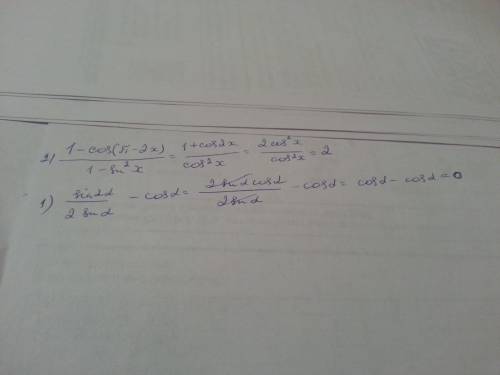 2) (1-cos(π-2x))/(1-sin²x) = (1+cos2x)/(cos²x) = (2cos²x)/(cos²x) = 2
1) (sin2α)/(2sinα) - cosα = (2sinαcosα)/(2sinα) - cosα = cosα - cosα = 0